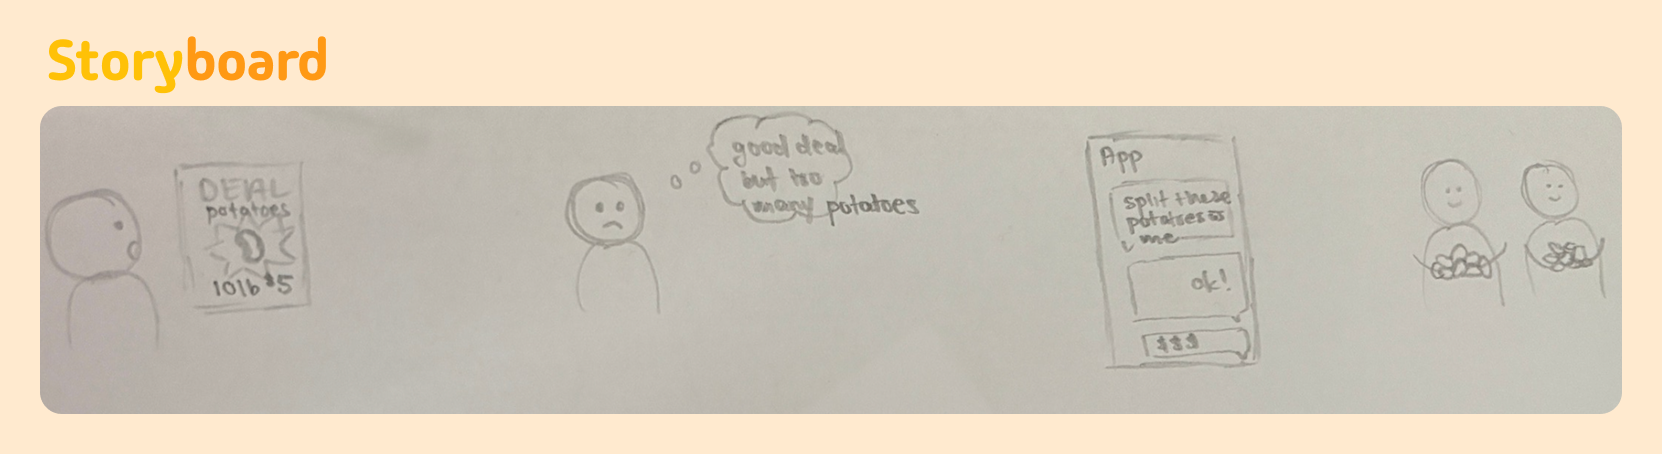 Storyboard
DEAL
potatoes
10lb $5
good deal
but too
many potatoes
App
split these
potatoes w
me
ok!
$$$